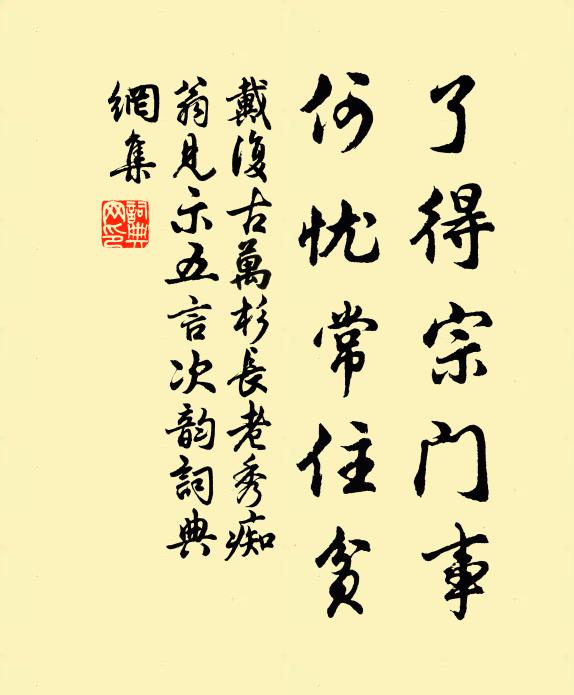 了得宗门事
何忧常住贫
戴復古萬杉長老秀痴
翁見示五言次韵詞典
網集
詞典
网印